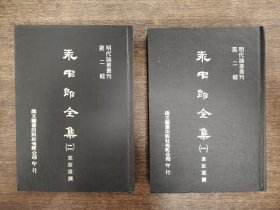 明代論著叢刊
第二輯
袁中郎全集(二)
袁宏道撰
偉文圖書出版社有限公司印行
明代論著叢刊
第二輯
袁中郎全集(一)
袁宏道撰
偉文圖書出版社有限公司印行